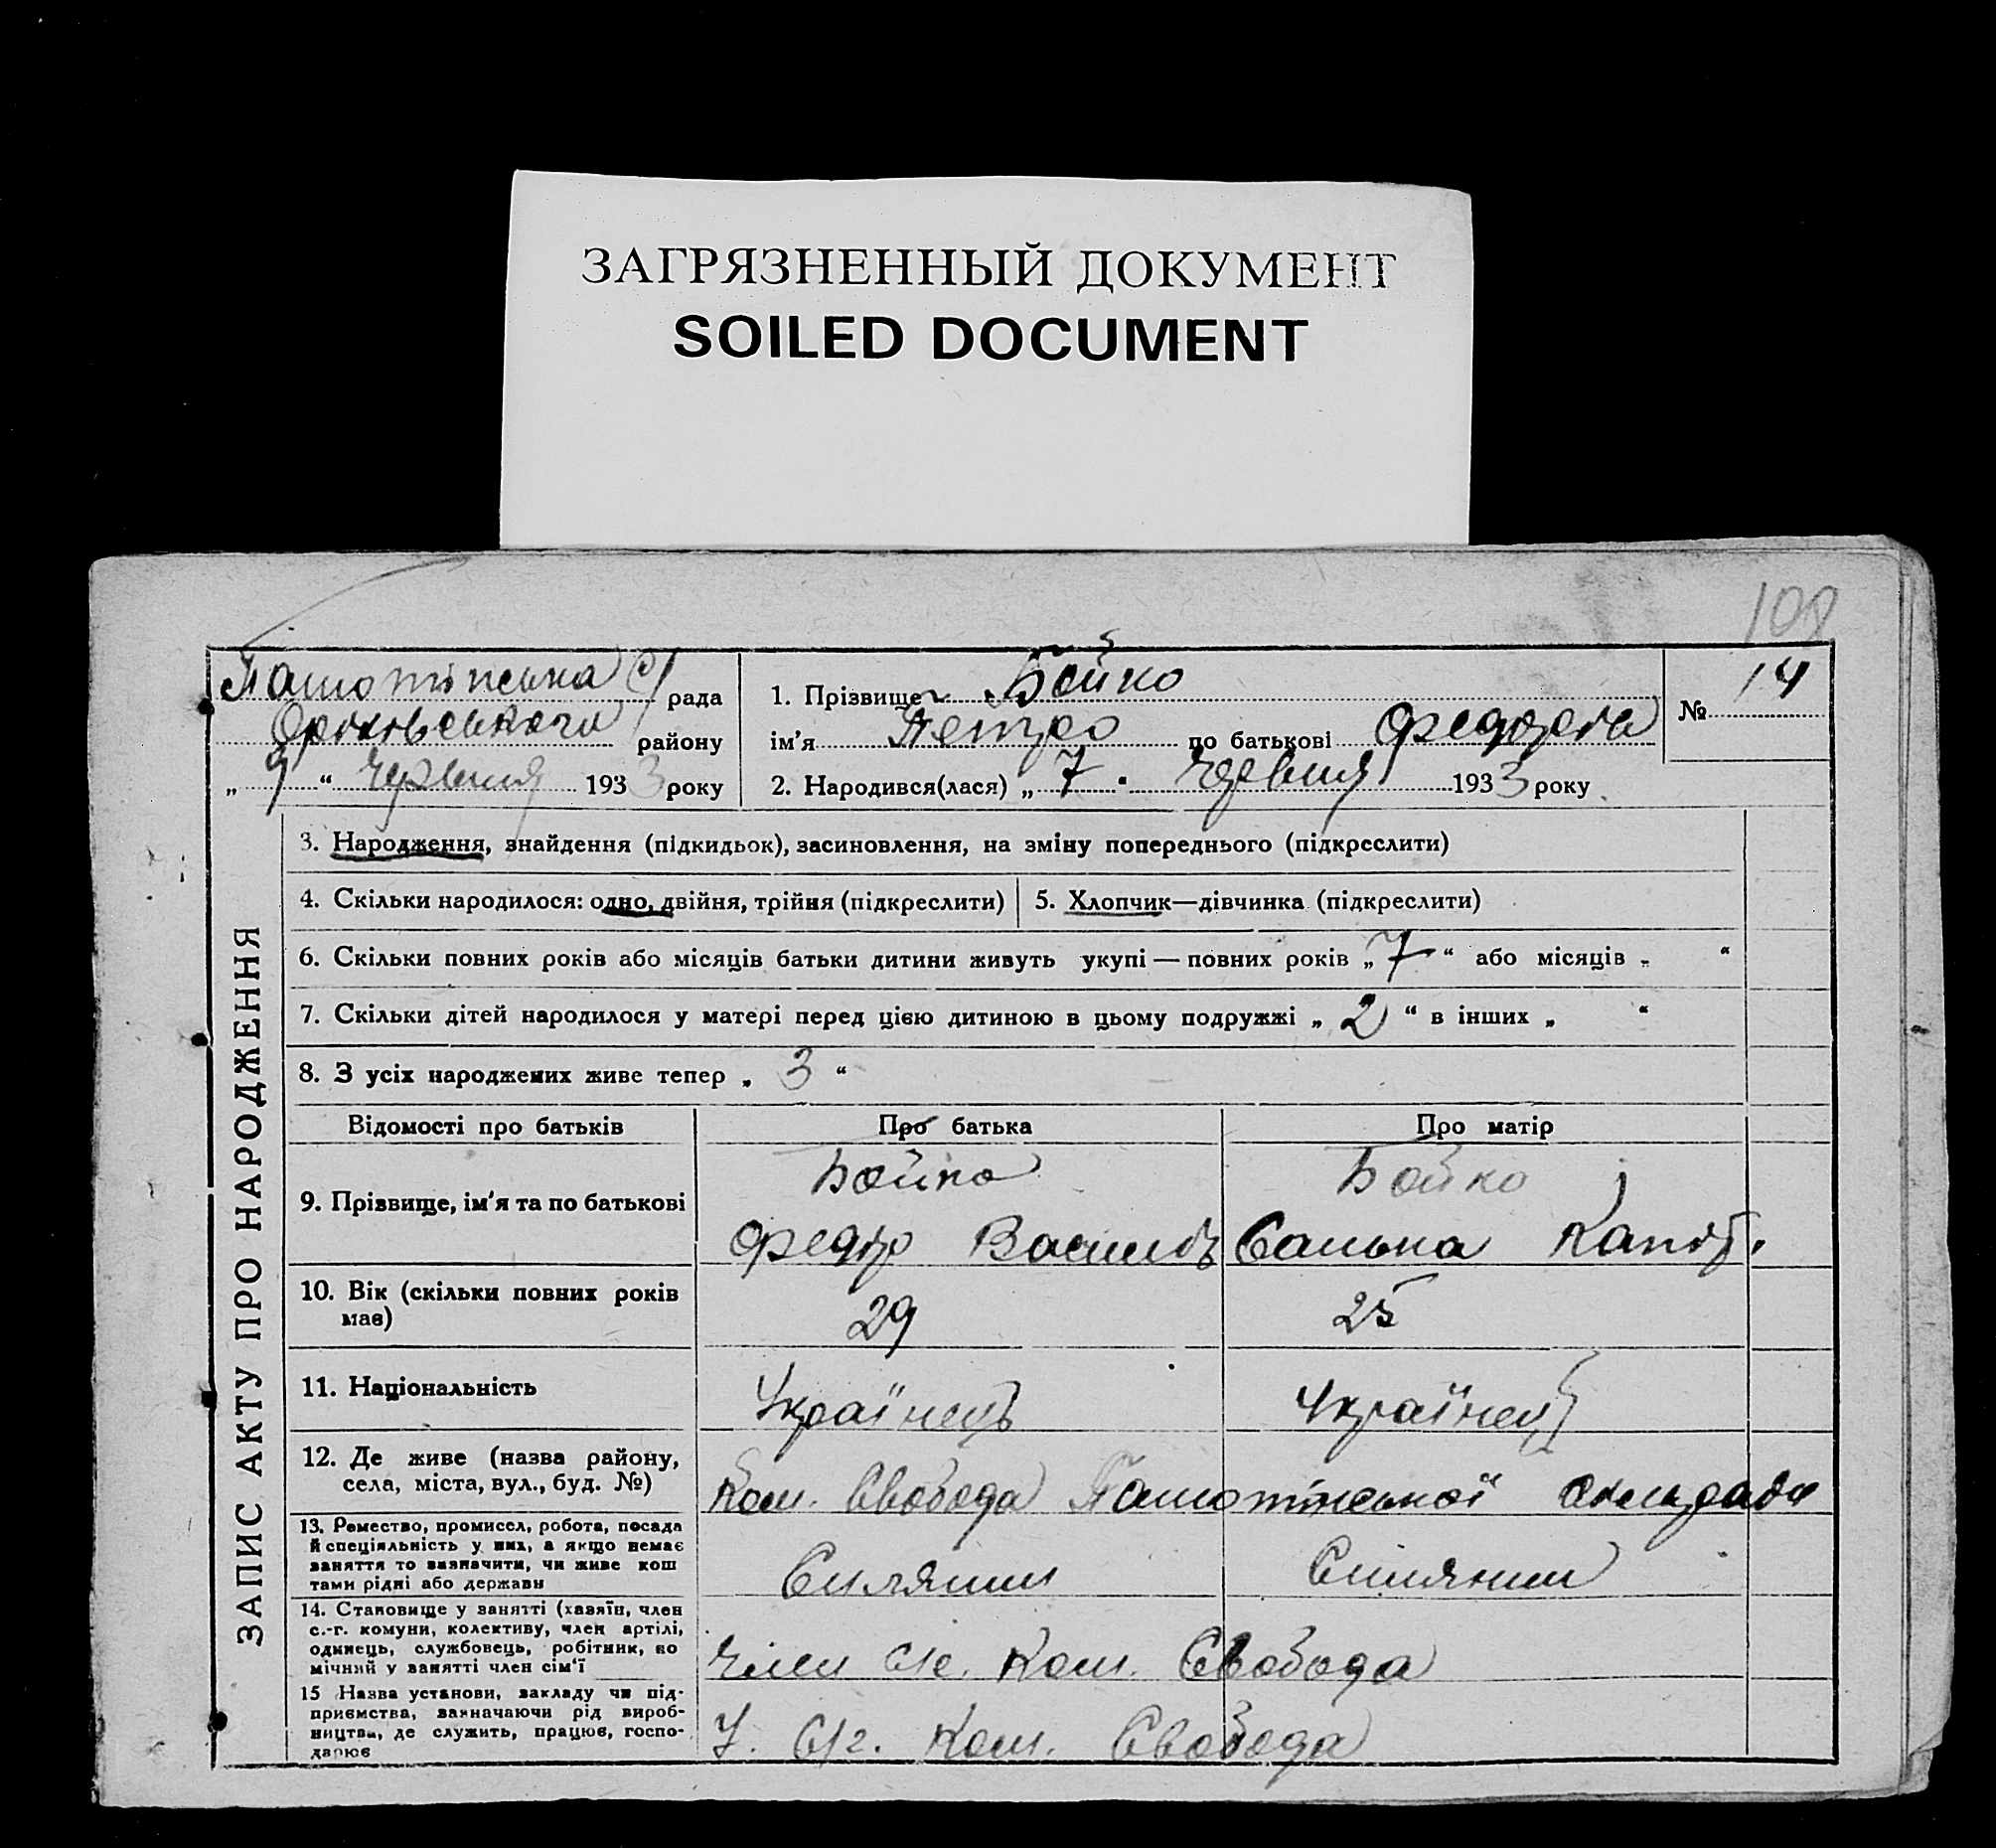 ЗАГРЯЗНЕННЫЙ ДОКУМЕНТ
SOILED DOCUMENT
108
рада
району
„ 9 “ Червня 1933 року
1. Прізвище Бойко
ім'я Петро по батькові
2. Народився(лася) „ 7 “ Червня 1933 року
№ 14
ЗАПИС АКТУ ПРО НАРОДЖЕННЯ
3. Народження, знайдення (підкидьок), засиновлення, на зміну попереднього (підкреслити)
4. Скільки народилося: одно, двійня, трійня (підкреслити)
5. Хлопчик—дівчинка (підкреслити)
6. Скільки повних років або місяців батьки дитини живуть укупі — повних років „ 7 “ або місяців „ “
7. Скільки дітей народилося у матері перед цією дитиною в цьому подружжі „ 2 “ в інших „ “
8. З усіх народжених живе тепер „ 3 “
Відомості про батьків Про батька Про матір
9. Прізвище, ім'я та по батькові
Бойко
Федір
Бойко
10. Вік (скільки повних років має)
29
25
11. Національність
Українець
12. Де живе (назва району,
села, міста, вул., буд. №)
Ком. Свобода
13. Ремество, промисел, робота, посада
й спеціяльність у них, а якщо немає
заняття то визначити, чи живе кош
тами рідні або держави
14. Становище у занятті (хазяїн, член
с.-г. комуни, колективу, член артілі,
одинець, службовець, робітник, по
мічний у занятті член сім'ї
Ком. Свобода
15 Назва установи, закладу чи під-
приємства, зазначаючи рід вироб-
ництва, де служить, працює, госпо-
дарює
У. С/г. Ком. Свобода